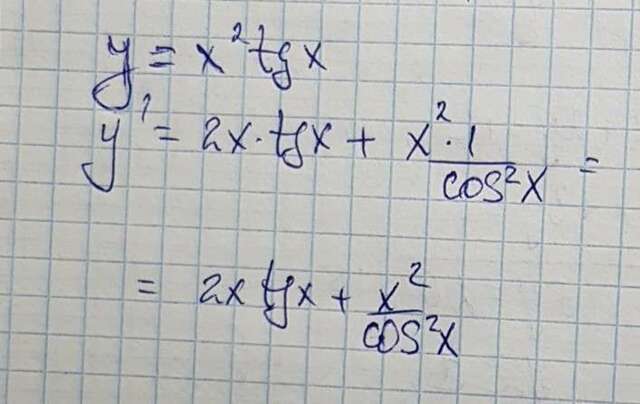 y = x² tg x
y' = 2x · tg x + x² · 1 / cos² x =
= 2x tg x + x² / cos² x